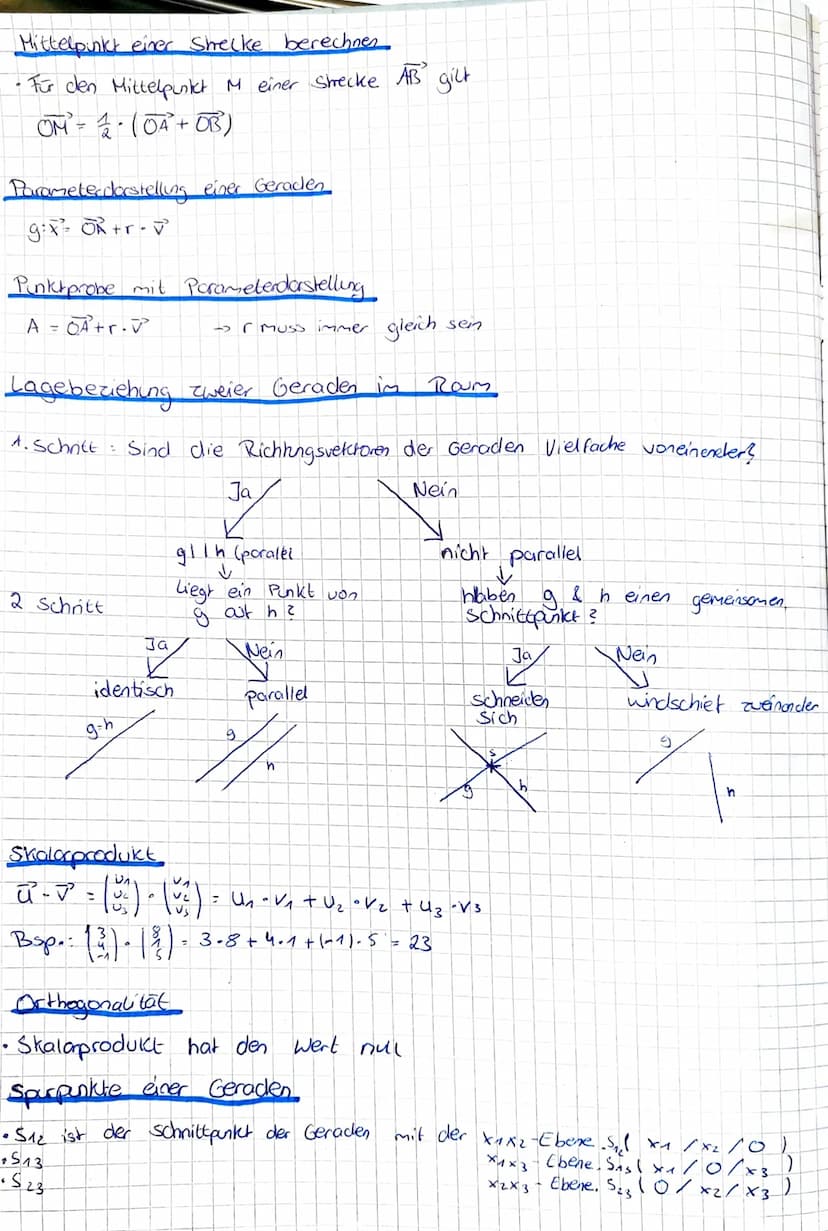 Mittelpunkt einer Strecke berechnen
· Für den Mittelpunkt M einer Strecke AB⃗ gilt
OM⃗ = 1/2 · (OA⃗ + OB⃗)
Parameterdarstellung einer Geraden
g: x⃗ = OA⃗ + r · v⃗
Punktprobe mit Parameterdarstellung
A = OA⃗ + r · v⃗ → r muss immer gleich sein
Lagebeziehung zweier Geraden im Raum
1. Schritt: Sind die Richtungsvektoren der Geraden Vielfache voneinander?
Ja Nein
g || h (parallel nicht parallel
2 Schritt
Liegt ein Punkt von
g auf h?
Haben g & h einen gemeinsamen
Schnittpunkt?
Ja Nein Ja Nein
identisch parallel schneiden
sich
windschief zueinander
g=h g h s g h g h
Skalarprodukt
u⃗ · v⃗ = (u1 u2 u3) · (v1 v2 v3) = u1 · v1 + u2 · v2 + u3 · v3
Bsp.: (3 4 -1) · (8 1 5) = 3·8 + 4·1 + (-1)·5 = 23
Orthogonalität
· Skalarprodukt hat den Wert null
Spurpunkte einer Geraden
· S12 ist der Schnittpunkt der Geraden mit der x1x2-Ebene. S12( x1 / x2 / 0 )
· S13 x1x3-Ebene. S13( x1 / 0 / x3 )
· S23 x2x3-Ebene. S23( 0 / x2 / x3 )